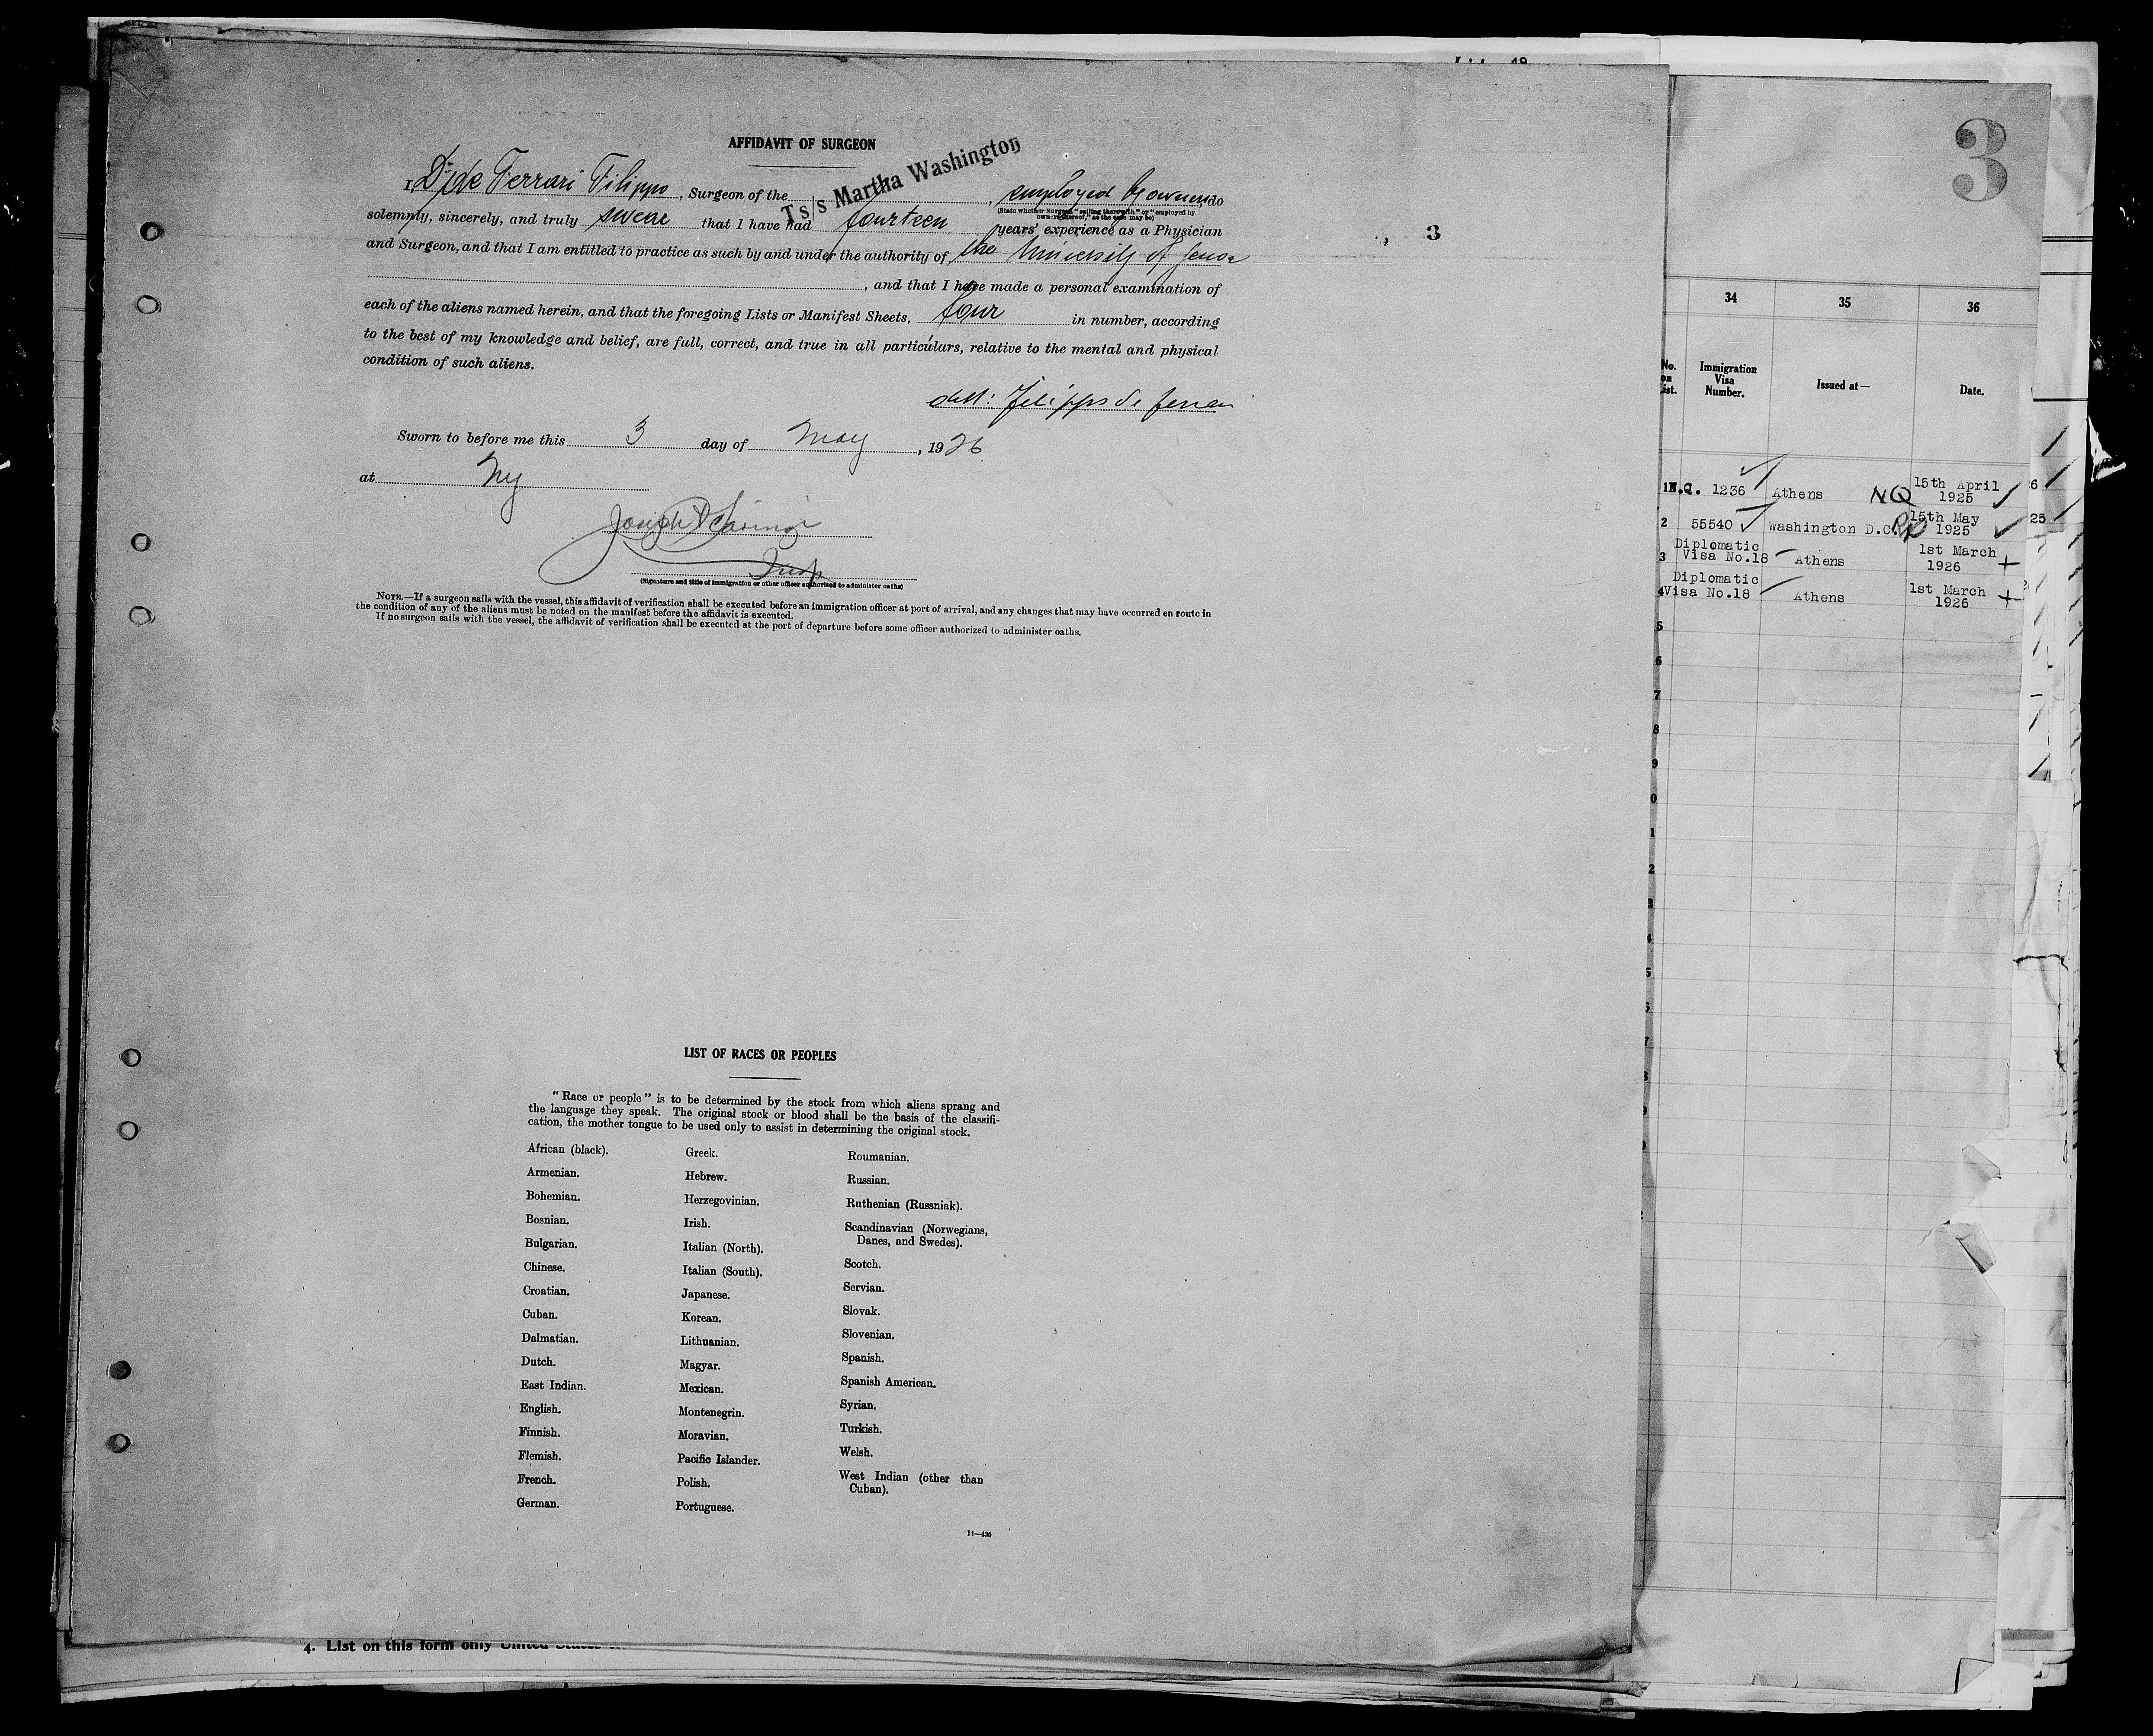 AFFIDAVIT OF SURGEON
I, Dr de Ferrari Filippo, Surgeon of the Ts/s Martha Washington, employed by owners, do
(State whether Surgeon "sailing therewith" or "employed by
owners thereof," as the case may be)
solemnly, sincerely, and truly swear that I have had fourteen years' experience as a Physician
and Surgeon, and that I am entitled to practice as such by and under the authority of the University of Genoa
, and that I have made a personal examination of
each of the aliens named herein, and that the foregoing Lists or Manifest Sheets, four in number, according
to the best of my knowledge and belief, are full, correct, and true in all particulars, relative to the mental and physical
condition of such aliens.
dott: Filippo de Ferrari
Sworn to before me this 3 day of May, 1926
at Ny
Joseph
Insp
(Signature and title of immigration or other officer authorized to administer oaths)
NOTE.—If a surgeon sails with the vessel, this affidavit of verification shall be executed before an immigration officer at port of arrival, and any changes that may have occurred en route in
the condition of any of the aliens must be noted on the manifest before the affidavit is executed.
If no surgeon sails with the vessel, the affidavit of verification shall be executed at the port of departure before some officer authorized to administer oaths.
3
LIST OF RACES OR PEOPLES
"Race or people" is to be determined by the stock from which aliens sprang and
the language they speak. The original stock or blood shall be the basis of the classifi-
cation, the mother tongue to be used only to assist in determining the original stock.
African (black).
Armenian.
Bohemian.
Bosnian.
Bulgarian.
Chinese.
Croatian.
Cuban.
Dalmatian.
Dutch.
East Indian.
English.
Finnish.
Flemish.
French.
German.
Greek.
Hebrew.
Herzegovinian.
Irish.
Italian (North).
Italian (South).
Japanese.
Korean.
Lithuanian.
Magyar.
Mexican.
Montenegrin.
Moravian.
Pacific Islander.
Polish.
Portuguese.
Roumanian.
Russian.
Ruthenian (Russniak).
Scandinavian (Norwegians,
Danes, and Swedes).
Scotch.
Servian.
Slovak.
Slovenian.
Spanish.
Spanish American.
Syrian.
Turkish.
Welsh.
West Indian (other than
Cuban).
14—430
4. List on this form only United States
3
34 35 36
No.
on
List.
Immigration
Visa
Number.
Issued at—
Date.
1 N.Q. 1236 Athens NQ 15th April
1925
2 55540 Washington D.C. 15th May
1925
3 Diplomatic
Visa No.18 Athens 1st March
1926
4 Diplomatic
Visa No.18 Athens 1st March
1926
5
6
7
8
9
0
1
2
3
4
5
6
7
8
9